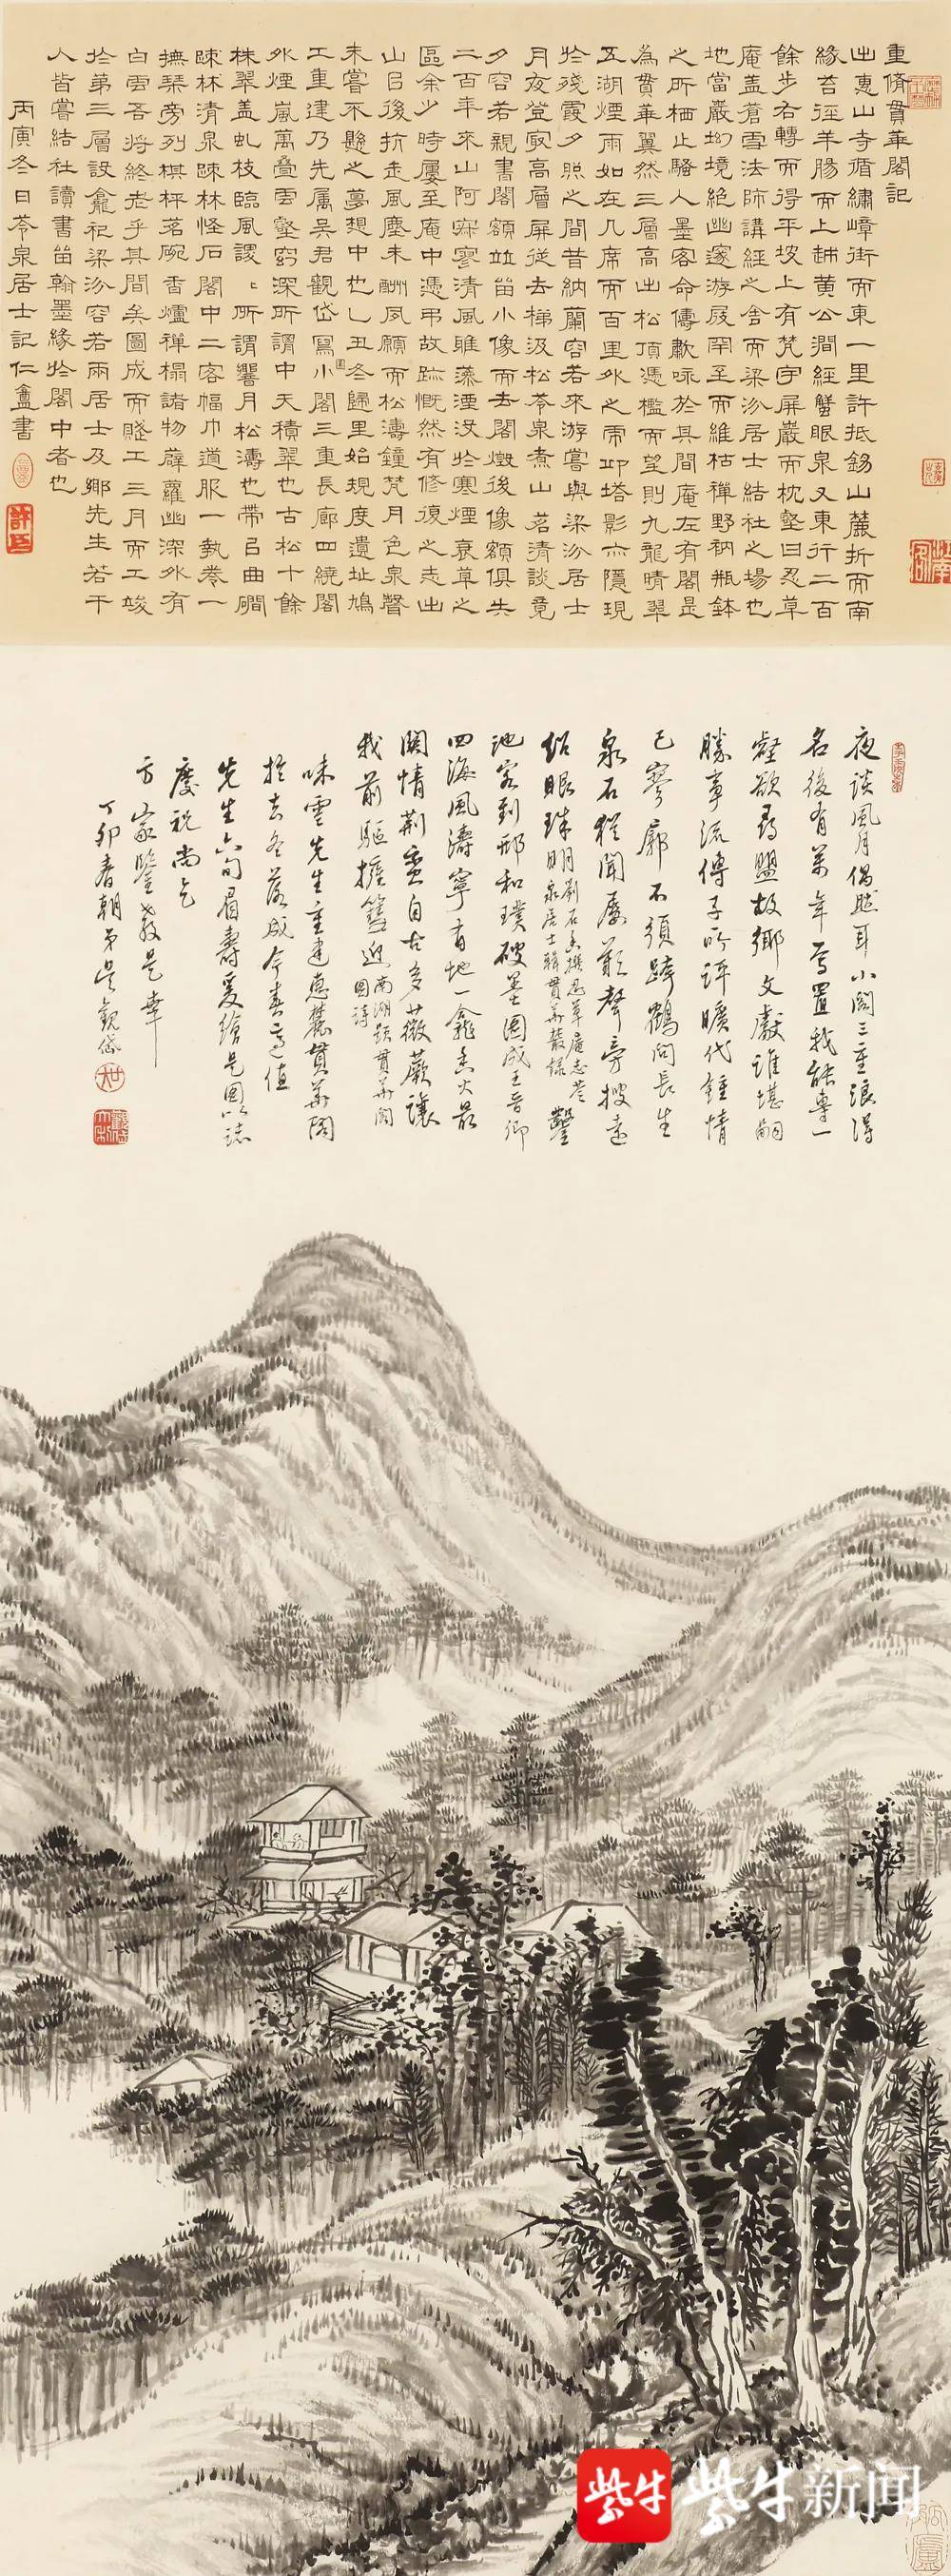 重脩貫華閣記
出惠山寺循繡嶂街而東一里許抵錫山麓折而南
緣苔徑羊腸而上越黃公澗經蟹眼泉又東行二百
餘步右轉而得平坡上有梵宇屏巖而枕壑曰忍草
庵蓋蒼雪法師講經之舍而梁汾居士結社之場也
地當巖坳境絕幽邃游屐罕至而維枯禪野衲瓶鉢
之所栖止騷人墨客命儔歗咏於其間庵左有閣是
為貫華翼然三層高出松頂憑檻而望則九龍晴翠
五湖煙雨如在几席而百里外之虎邱塔影亦隱現
於殘霞夕照之間昔納蘭容若來游嘗與梁汾居士
月夜登寂高層屏從去梯汲松苓泉煮山茗清談竟
夕容若親書閣額並畱小像而去閣燬後像額俱失
二百年來山阿寂寥清風雖藻湮沒於寒煙衰草之
區余少時屢至庵中憑弔故跡慨然有修復之志出
山㠯後抗走風塵未酬夙願而松濤鐘梵月色泉聲
未嘗不懸之夢想中也乙丑冬歸里始規度遺址鳩
工重建乃先屬吳君觀岱寫小閣三重長廊四繞閣
外煙嵐萬疊雲壑窈深所謂中天積翠也古松十餘
株翠蓋虬枝臨風謖謖所謂響月松濤也帶㠯曲磵
疎林清泉疎林怪石閣中二客幅巾道服一執卷一
撫琴旁列棋枰茗碗香爐禪榻諸物薜蘿幽深外有
白雲吾將終老乎其間矣圖成而賤工三月而工竣
於第三層設龕祀梁汾容若兩居士及鄉先生若干
人皆嘗結社讀書畱翰墨緣於閣中者也
丙寅冬日苓泉居士記仁盦書
夜談風月偶然耳小閣三重浪得
名後有萬年寫置我能專一
壑欲尋盟故鄉文獻誰堪嗣
勝事流傳子所評曠代鍾情
已寥廓不須跨鶴問長生
泉石猶聞屢歎聲旁搜遠
紹眼珠明
池客到邢和璞破墨圖成王晉卿
四海風濤寧有地一龕香火最
關情荊蠻自古多薇蕨讓
我前驅擁篲迎
味雲先生重建惠麓貫華閣
於去冬落成今春適值
先生六旬眉壽爰繪是圖以誌
慶祝尚乞
方家鑒教是幸
丁卯春朝弟吳觀岱
紫牛
紫牛新闻